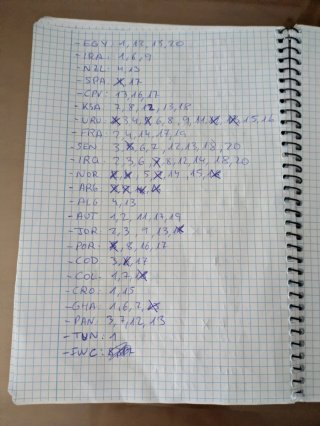 - EGY: 1, 12, 15, 20
- IRA: 1, 6, 9
- NZL: 4, 13
- SPA: 17
- CPV: 13, 16, 17
- KSA: 7, 8, 12, 13, 18
- URU: 3, 4, 6, 8, 9, 11, 15, 16
- FRA: 2, 4, 14, 17, 19
- SEN: 3, 6, 7, 12, 13, 18, 20
- IRQ: 2, 3, 6, 8, 12, 14, 18, 20
- NOR: 5, 14, 15
- ARG:
- ALG: 4, 13
- AUT: 1, 2, 11, 17, 19
- JOR: 2, 3, 9, 13
- POR: 8, 16, 17
- COD: 3, 17
- COL: 1, 7
- CRO: 1, 15
- GHA: 1, 6, 7
- PAN: 3, 7, 12, 13
- TUN: 1
- FWC: